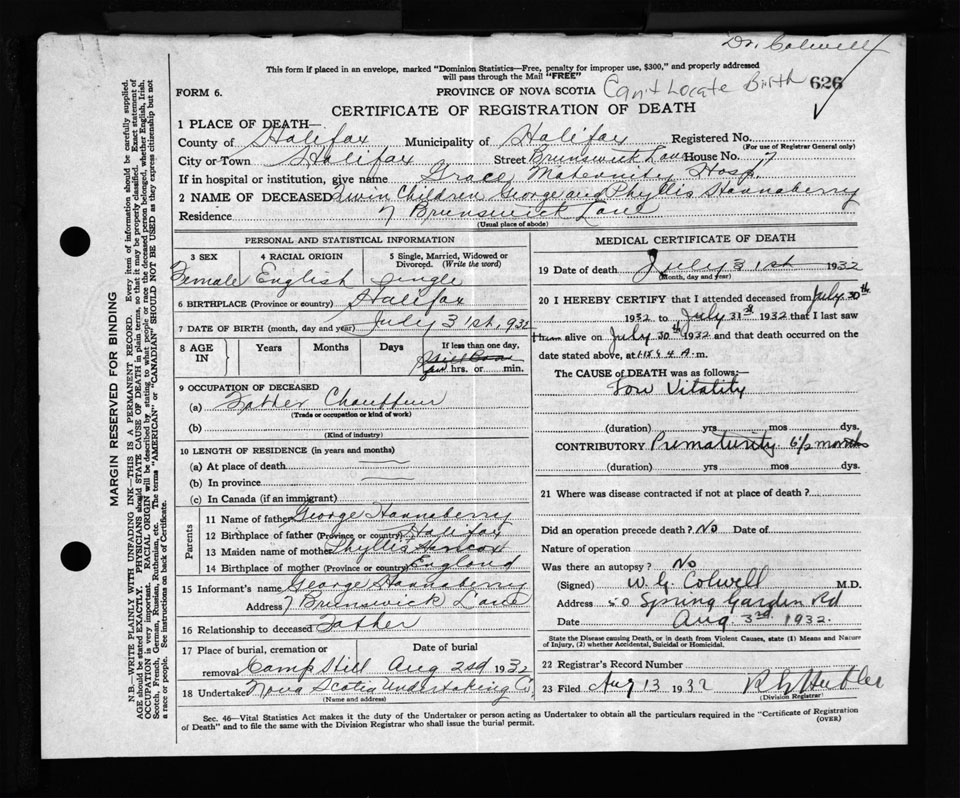 Dr. Colwell
This form if placed in an envelope, marked "Dominion Statistics—Free, penalty for improper use, $300," and properly addressed
will pass through the Mail "FREE"
FORM 6.
PROVINCE OF NOVA SCOTIA Can't Locate Birth 626
CERTIFICATE OF REGISTRATION OF DEATH
1 PLACE OF DEATH—
County of Halifax Municipality of Halifax Registered No.
(For use of Registrar General only)
City or Town Halifax Street Brunswick Lane House No. 7
If in hospital or institution, give name Grace Maternity Hosp.
2 NAME OF DECEASED Twin Children George and Phyllis Hannaberry
Residence 7 Brunswick Lane
(Usual place of abode)
PERSONAL AND STATISTICAL INFORMATION
3 SEX 4 RACIAL ORIGIN 5 Single, Married, Widowed or
Divorced. (Write the word)
Female English Single
6 BIRTHPLACE (Province or country) Halifax
7 DATE OF BIRTH (month, day and year) July 31st, 932
8 AGE IN Years Months Days If less than one day,
hrs. or min.
9 OCCUPATION OF DECEASED
(a) Father Chauffeur
(Trade or occupation or kind of work)
(b)
(Kind of industry)
10 LENGTH OF RESIDENCE (in years and months)
(a) At place of death
(b) In province
(c) In Canada (if an immigrant)
Parents
11 Name of father George Hannaberry
12 Birthplace of father (Province or country) Halifax
13 Maiden name of mother Phyllis Hancox
14 Birthplace of mother (Province or country) England
15 Informant's name George Hannaberry
Address 7 Brunswick Lane
16 Relationship to deceased Father
17 Place of burial, cremation or Date of burial
removal Camp Hill Aug 2nd 1932
18 Undertaker Nova Scotia Undertaking Co
(Name and address)
MEDICAL CERTIFICATE OF DEATH
19 Date of death July 31st 1932
(Month, day and year)
20 I HEREBY CERTIFY that I attended deceased from July 30th
1932 to July 31st 1932 that I last saw
alive on July 30th 1932 and that death occurred on the
date stated above, at A.m.
The CAUSE of DEATH was as follows:
Low Vitality
(duration) yrs mos dys.
CONTRIBUTORY Prematurity 6½ months
(duration) yrs mos dys.
21 Where was disease contracted if not at place of death?
Did an operation precede death? No Date of
Nature of operation
Was there an autopsy? No
(Signed) W. G. Colwell M.D.
Address 50 Spring Garden Rd
Date Aug. 3rd 1932.
State the Disease causing Death, or in death from Violent Causes, state (1) Means and Nature
of Injury, (2) whether Accidental, Suicidal or Homicidal.
22 Registrar's Record Number
23 Filed Aug 13 1932
(Division Registrar)
Sec. 46—Vital Statistics Act makes it the duty of the Undertaker or person acting as Undertaker to obtain all the particulars required in the "Certificate of Registration
of Death" and to file the same with the Division Registrar who shall issue the burial permit. (OVER)
MARGIN RESERVED FOR BINDING
N.B.—WRITE PLAINLY WITH UNFADING INK—THIS IS A PERMANENT RECORD. Every item of information should be carefully supplied.
AGE should be stated EXACTLY. PHYSICIANS should STATE CAUSE OF DEATH in plain terms, so that it may be properly classified. Exact statement of
OCCUPATION is very important. RACIAL ORIGIN will be described by stating to what people or race the deceased person belonged, whether English, Irish,
Scotch, French, German, Russian, Ruthenian, etc. The terms "AMERICAN" or "CANADIAN" SHOULD NOT BE USED as they express citizenship but not
a race or people. See instructions on back of Certificate.